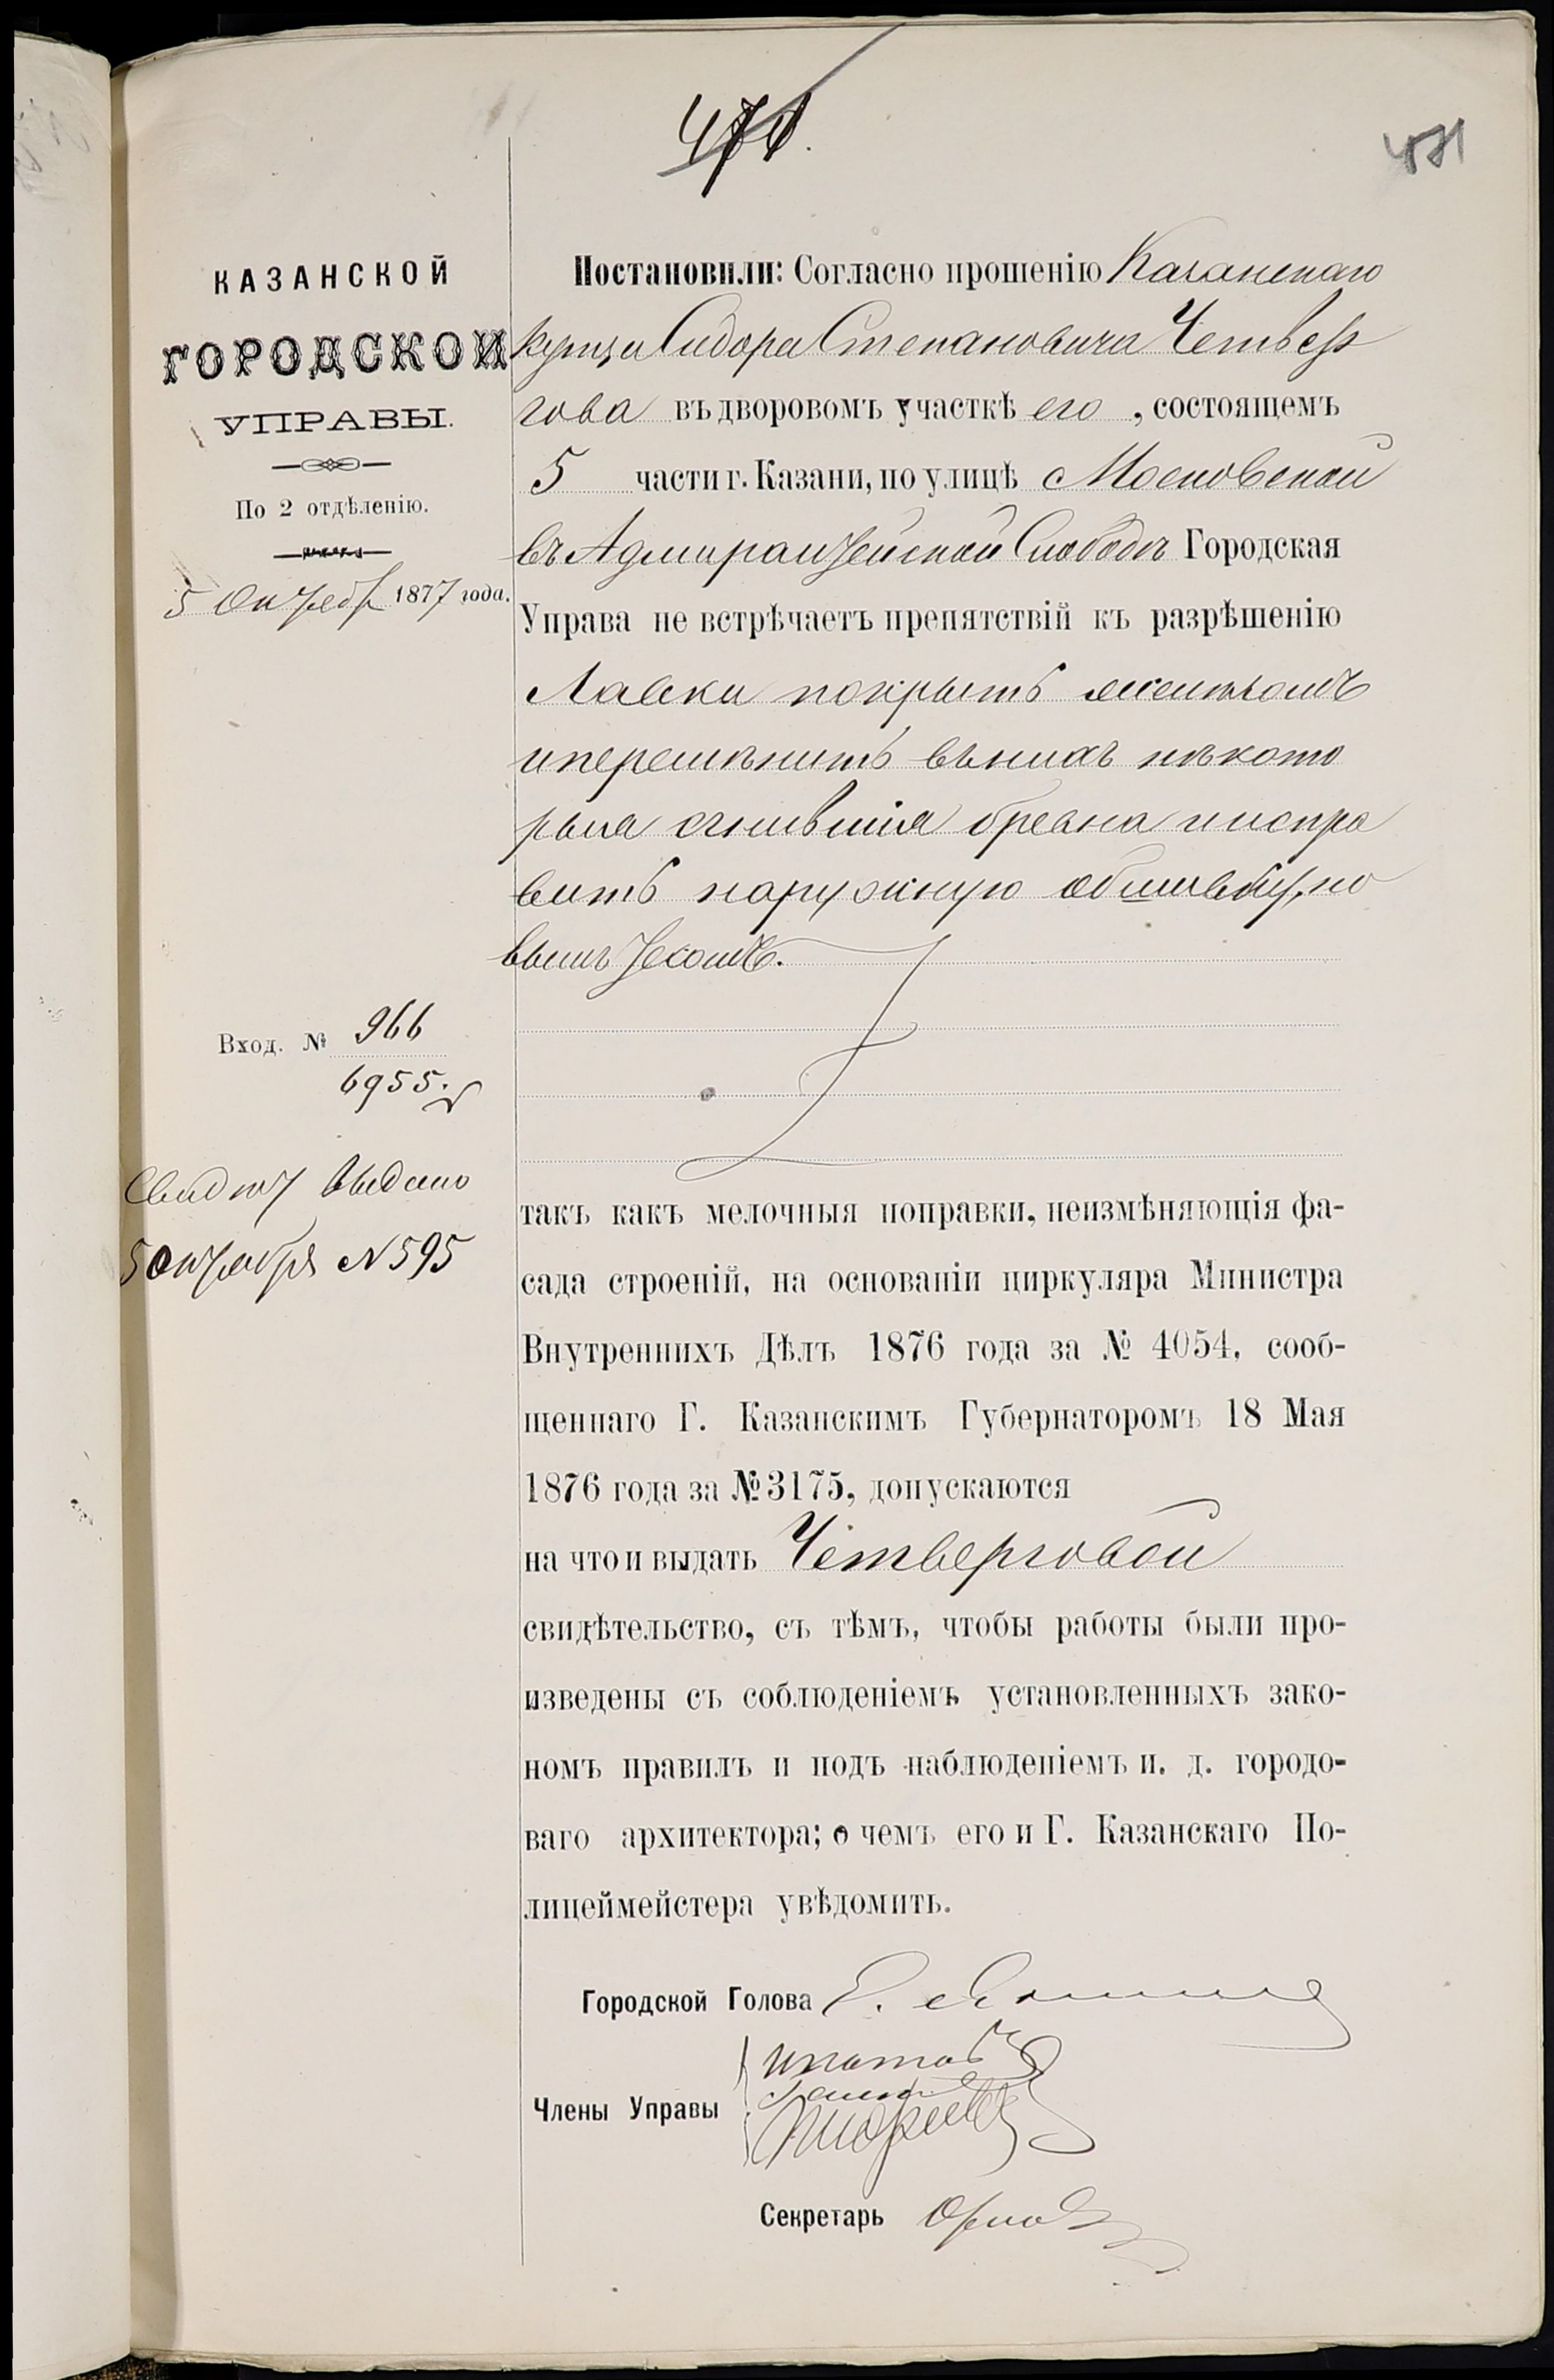 471.
471
КАЗАНСКОЙ
ГОРОДСКОЙ
УПРАВЫ.
По 2 отдѣленію.
5 Октябр 1877 года.
Вход. № 966
6955.
Свидѣт выдано
5 Октября № 595
Постановили: Согласно прошенію Казанскаго
купца Сидора Степановича Четвер
гова въ дворовомъ участкѣ его, состоящемъ
5 части г. Казани, по улицѣ Московской
въ Адмиралтейской Слободѣ Городская
Управа не встрѣчаетъ препятствій къ разрѣшенію
Лавки покрыть желѣзомъ
и перемѣнить въ нихъ нѣкото
рыя сгнившія бревна и испра
вить наружную обшивку, но
вымъ тесомъ.
такъ какъ мелочныя поправки, неизмѣняющія фа-
сада строеній, на основаніи циркуляра Министра
Внутреннихъ Дѣлъ 1876 года за № 4054, сооб-
щеннаго Г. Казанскимъ Губернаторомъ 18 Мая
1876 года за № 3175, допускаются
на что и выдать Четверговой
свидѣтельство, съ тѣмъ, чтобы работы были про-
изведены съ соблюденіемъ установленныхъ зако-
номъ правилъ и подъ наблюденіемъ и. д. городо-
ваго архитектора; о чемъ его и Г. Казанскаго По-
лицеймейстера увѣдомить.
Городской Голова
Члены Управы Ипатовъ
Секретарь Орлов